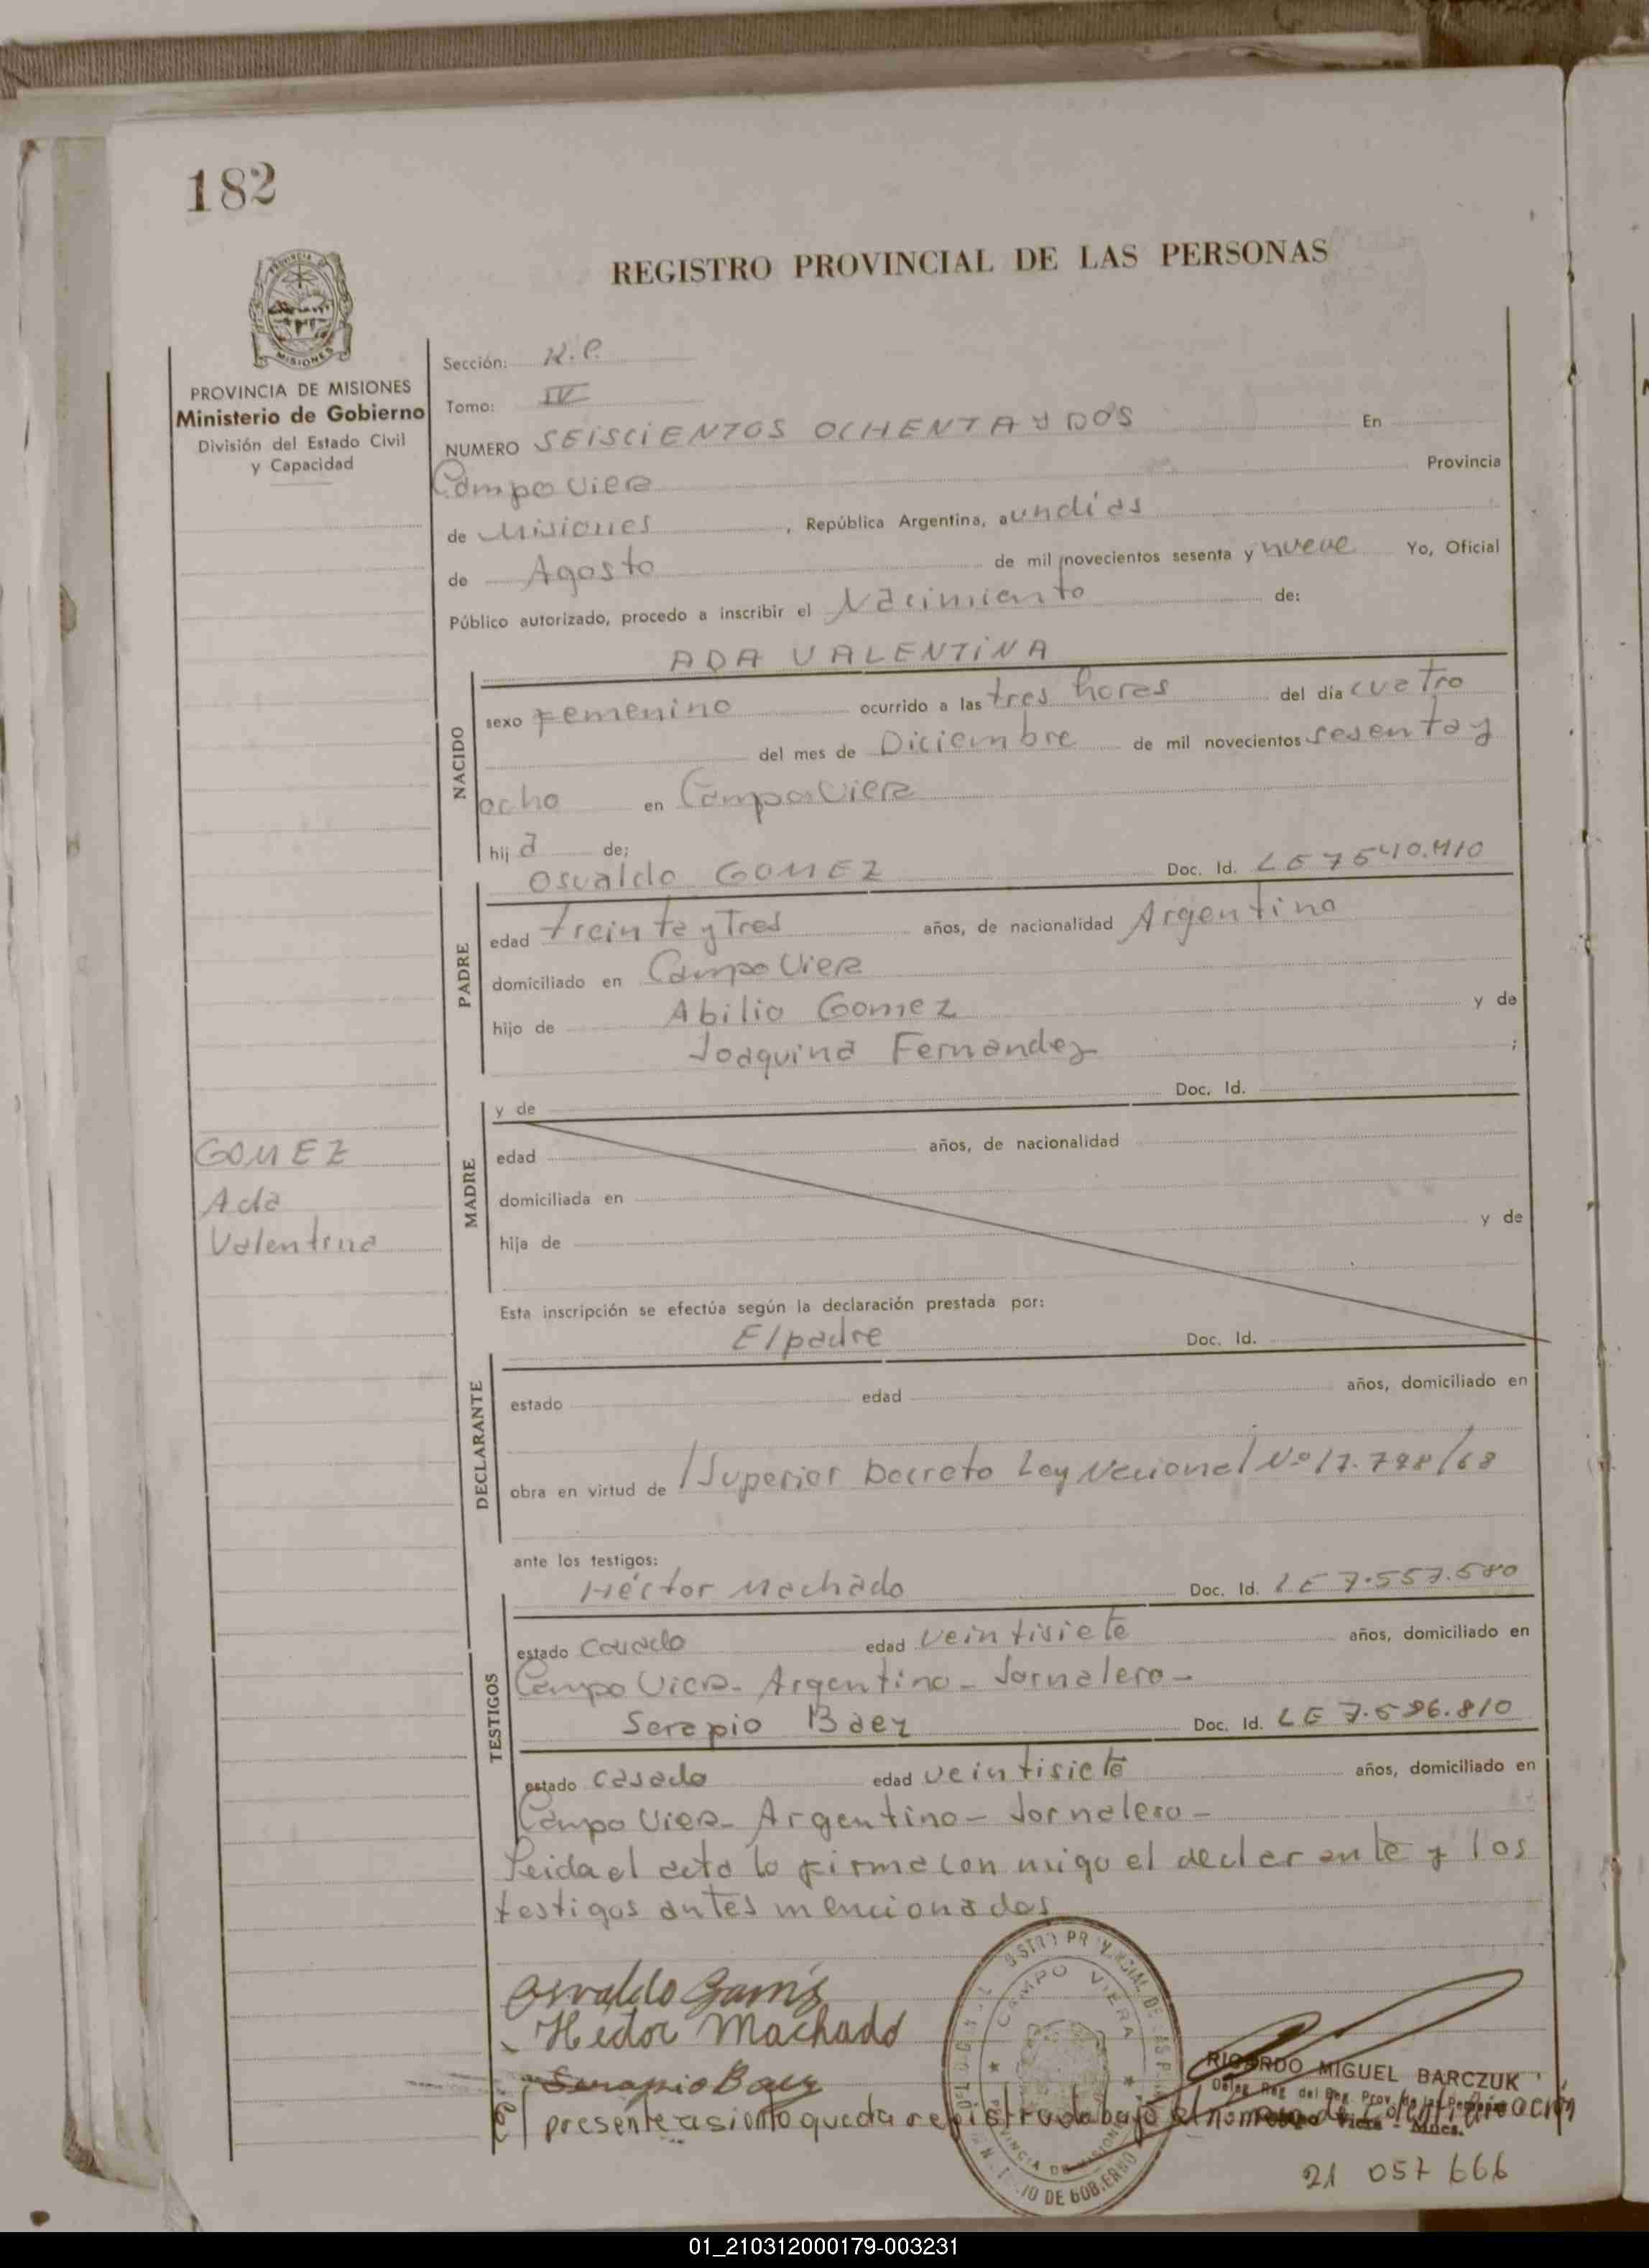 182
REGISTRO PROVINCIAL DE LAS PERSONAS
MISIONES
PROVINCIA DE MISIONES
Ministerio de Gobierno
División del Estado Civil
y Capacidad
Sección: K.P.
Tomo: IV
NUMERO SEISCIENTOS OCHENTA Y DOS En
Campo Viera Provincia
de Misiones, República Argentina, a un días
de Agosto de mil novecientos sesenta y nueve Yo, Oficial
Público autorizado, procedo a inscribir el Nacimiento de:
ADA VALENTINA
NACIDO
sexo Femenino ocurrido a las tres horas del día cuatro
del mes de Diciembre de mil novecientos sesenta y
ocho en Campo Viera
hija de;
Osvaldo GOMEZ Doc. Id. LE 7540.410
PADRE
edad treinta y Tres años, de nacionalidad Argentino
domiciliado en Campo Viera
hijo de Abilio Gomez y de
Joaquina Fernandez ;
y de Doc. Id.
MADRE
edad años, de nacionalidad
domiciliada en
hija de y de
GOMEZ
Ada
Valentina
Esta inscripción se efectúa según la declaración prestada por:
El padre Doc. Id.
DECLARANTE
estado edad años, domiciliado en
obra en virtud de /Superior Decreto Ley Nacional Nº 17.798/68
ante los testigos:
Héctor Machado Doc. Id. LE 7.557.580
TESTIGOS
estado casado edad veintisiete años, domiciliado en
Campo Viera - Argentino - Jornalero -
Serapio Baez Doc. Id. LE 7.586.810
estado casado edad veintisiete años, domiciliado en
Campo Viera - Argentino - Jornalero -
Leida el acta la firma con migo el declarante y los
testigos antes mencionados
Osvaldo Gomez
Hector Machado
Serapio Baez
CAMPO VIERA
RICARDO MIGUEL BARCZUK
El presente asiento queda registrado bajo el nº de identificación
21 057 666
01_210312000179-003231